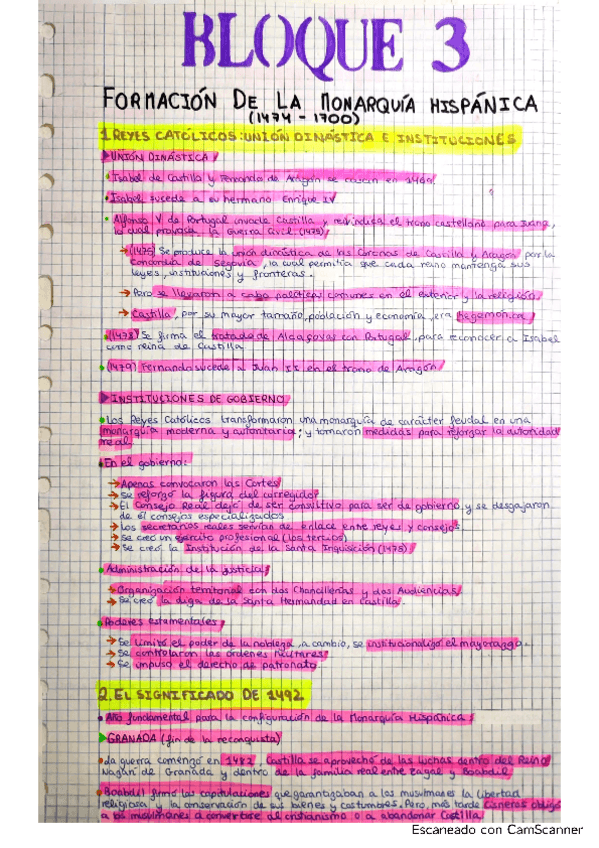 BLOQUE 3
FORMACIÓN DE LA MONARQUÍA HISPÁNICA
(1474 - 1700)
1. REYES CATÓLICOS: UNIÓN DINÁSTICA E INSTITUCIONES
UNIÓN DINÁSTICA
Isabel de Castilla y Fernando de Aragón se casan en 1469.
Isabel sucede a su hermano Enrique IV
Alfonso V de Portugal invade Castilla y reivindica el trono castellano para Juana,
lo cual provoca la Guerra Civil (1475)
→ (1475) Se produce la unión dinástica de las Coronas de Castilla y Aragón por la
concordia de Segovia, la cual permitía que cada reino mantenga sus
leyes, instituciones y fronteras.
→ Pero se llevaron a cabo políticas comunes en el exterior y la religión
→ Castilla, por su mayor tamaño, población y economía, era hegemónica
Se firma el tratado de Alcaçovas con Portugal, para reconocer a Isabel
como reina de Castilla
(1479) Fernando sucede a Juan II en el trono de Aragón
INSTITUCIONES DE GOBIERNO
Los Reyes Católicos transformaron una monarquía de carácter feudal en una
monarquía moderna y autoritaria; y tomaron medidas para reforzar la autoridad
real.
En el gobierno:
→ Apenas convocaron las Cortes
→ Se reforzó la figura del corregidor
→ El Consejo Real dejó de ser consultivo para ser de gobierno, y se desgajaron
de él consejos especializados
→ Los secretarios reales servían de enlace entre reyes y consejos
→ Se creó un ejército profesional (los tercios)
→ Se creó la Institución de la Santa Inquisición (1478)
Administración de la justicia
→ Organización territorial con dos Chancillerías y dos Audiencias
→ Se creó la liga de la Santa Hermandad en Castilla.
Poderes estamentales
→ Se limitó el poder de la nobleza, a cambio, se institucionalizó el mayorazgo.
→ Se controlaron las órdenes militares
→ Se impuso el derecho de patronato.
2. EL SIGNIFICADO DE 1492
Año fundamental para la configuración de la Monarquía Hispánica
GRANADA (fin de la reconquista)
La guerra comenzó en 1482. Castilla se aprovechó de las luchas dentro del Reino
de Granada y dentro de la familia real entre Zagal y Boabdil
Boabdil firmó las capitulaciones que garantizaban a los musulmanes la libertad
religiosa y la conservación de sus bienes y costumbres. Pero, más tarde Cisneros obligó
a los musulmanes a convertirse al cristianismo o a abandonar Castilla
Escaneado con CamScanner